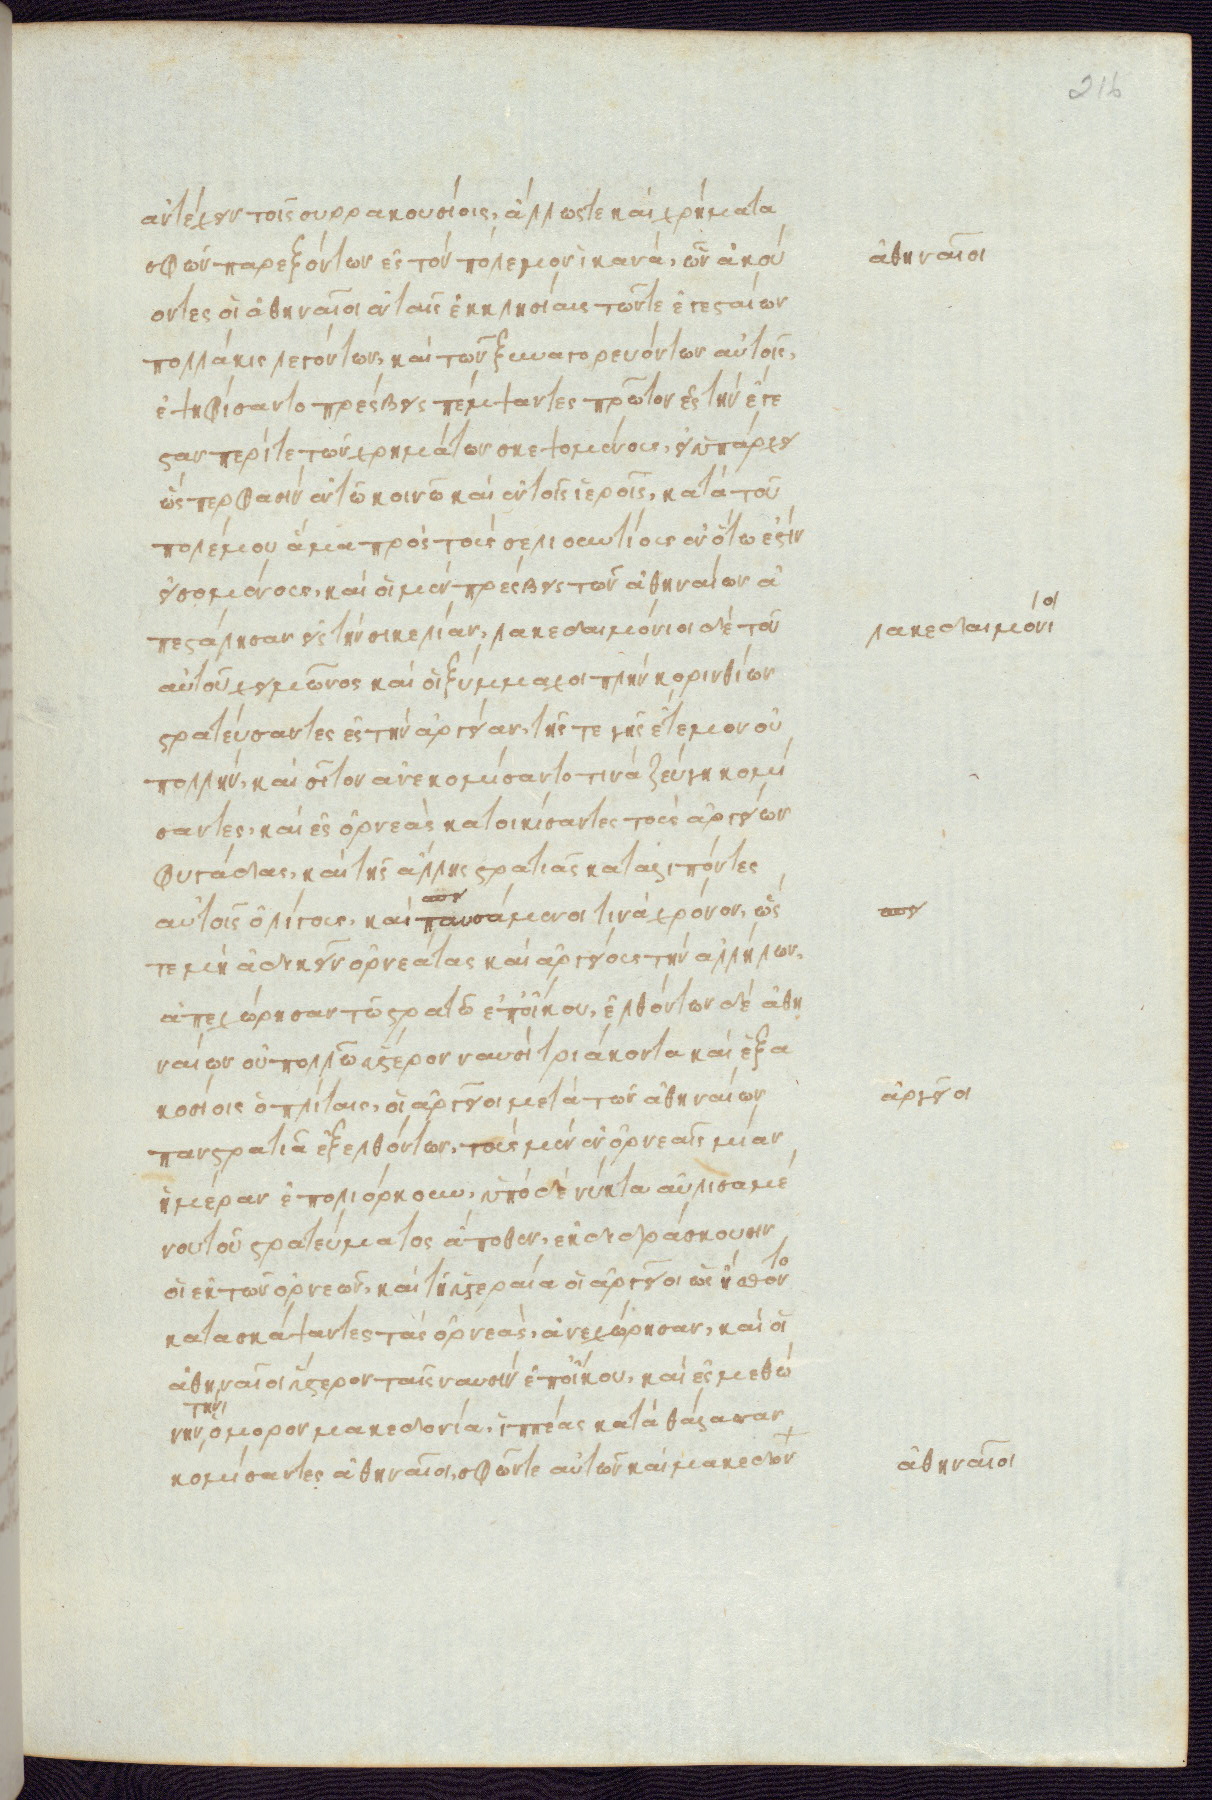 216
ἀντέχειν τοῖς συρρακουσίοις, ἄλλωςτε καὶ χρήματα
σφῶν παρεξόντων ἐς τὸν πόλεμον ἱκανά, ὧν ἀκού
ἀθηναῖοι
οντες οἱ ἀθηναῖοι ἐν ταῖς ἐκκλησίαις τῶντε ἐγεσταίων
πολλάκις λεγόντων, καὶ τῶν ξυναγορευόντων αὐτοῖς,
ἐψηφίσαντο πρέσβεις πέμψαντες πρῶτον ἐς τὴν ἔγε
σταν περίτε τῶν χρημάτων σκεψομένους, εἰ ὑπάρχει
ὥςπερ φασὶν ἐν τῶ κοινῶ καὶ ἐν τοῖς ἱεροῖς, κατὰ τοῦ
πολέμου ἅμα πρὸς τοὺς σελινουντίους ἐν ὅτω ἐστὶν
εἰσομένους, καὶ οἱ μὲν πρέσβεις τῶν ἀθηναίων ἀ
πεστάλησαν εἰς τὴν σικελίαν, λακεδαιμόνιοι δὲ τοῦ
λακεδαιμόνιοι
αὐτοῦ χειμῶνος καὶ οἱ ξύμμαχοι πλὴν κορινθίων
στρατεύσαντες ἐς τὴν ἀργείαν, τῆς τε γῆς ἔτεμον οὐ
πολλὴν, καὶ σῖτον ἀνεκομίσαντο τινὰ ζεύγη κομί
σαντες, καὶ ἐς ὀρνεὰς κατοικίσαντες τοὺς ἀργείων
φυγάδας, καὶ τῆς ἄλλης στρατιᾶς καταλιπόντες
αὐτοῖς ὀλίγους, καὶ παυσάμενοι τινὰ χρόνον, ὥς
τε μὴ ἀδικεῖν ὀρνεάτας καὶ ἀργείους τὴν ἀλλήλων,
ἀπεχώρησαν τῶ στρατῶ ἐπ' οἴκου, ἐλθόντων δὲ ἀθη
ναίων οὐ πολλῶ ὕστερον ναυσὶ τριάκοντα καὶ ἑξα
κοσίοις ὁπλίταις, οἱ ἀργεῖοι μετὰ τῶν ἀθηναίων
ἀργεῖοι
πανστρατιᾶ ἐξελθόντων, τοὺς μὲν ἐν ὀρνεαῖς μίαν
ἡμέραν ἐπολιόρκουν, ὑπὸ δὲ νύκτα αὐλισαμέ
νου τοῦ στρατεύματος ἄποθεν, ἐκδιδράσκουσιν
οἱ ἐκ τῶν ὀρνεῶν, καὶ τῆ ὑστεραία οἱ ἀργεῖοι ὡς ἤσθοντο
κατασκάψαντες τὰς ὀρνεὰς, ἀνεχώρησαν, καὶ οἱ
ἀθηναῖοι ὕστερον ταῖς ναυσὶν ἐπ' οἴκου, καὶ ἐς μεθώ
νην τὴν ὅμορον μακεδονία, ἱππέας κατὰ θάλασσαν
κομίσαντες ἀθηναῖοι, σφῶντε αὐτῶν καὶ μακεδόν
ἀθηναῖοι